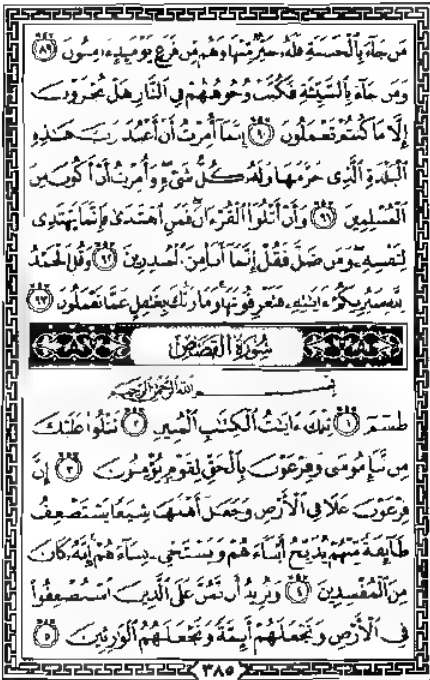 مَن جَآءَ بِالْحَسَنَةِ فَلَهُۥ خَيْرٌ مِّنْهَا وَهُم مِّن فَزَعٍ يَوْمَئِذٍ ءَامِنُونَ ٨٩
وَمَن جَآءَ بِالسَّيِّئَةِ فَكُبَّتْ وُجُوهُهُمْ فِى النَّارِ هَلْ تُجْزَوْنَ
إِلَّا مَا كُنتُمْ تَعْمَلُونَ ٩٠ إِنَّمَآ أُمِرْتُ أَنْ أَعْبُدَ رَبَّ هَٰذِهِ
الْبَلْدَةِ الَّذِى حَرَّمَهَا وَلَهُۥ كُلُّ شَىْءٍ وَأُمِرْتُ أَنْ أَكُونَ مِنَ
الْمُسْلِمِينَ ٩١ وَأَنْ أَتْلُوَا۟ الْقُرْءَانَ فَمَنِ اهْتَدَىٰ فَإِنَّمَا يَهْتَدِى
لِنَفْسِهِۦ وَمَن ضَلَّ فَقُلْ إِنَّمَآ أَنَا۠ مِنَ الْمُنذِرِينَ ٩٢ وَقُلِ الْحَمْدُ
لِلَّهِ سَيُرِيكُمْ ءَايَٰتِهِۦ فَتَعْرِفُونَهَا وَمَا رَبُّكَ بِغَٰفِلٍ عَمَّا تَعْمَلُونَ ٩٣
سُورَةُ الْقَصَصِ
بِسْمِ اللَّهِ الرَّحْمَٰنِ الرَّحِيمِ
طسٓمٓ ١ تِلْكَ ءَايَٰتُ الْكِتَٰبِ الْمُبِينِ ٢ نَتْلُوا۟ عَلَيْكَ
مِن نَّبَإِ مُوسَىٰ وَفِرْعَوْنَ بِالْحَقِّ لِقَوْمٍ يُؤْمِنُونَ ٣ إِنَّ
فِرْعَوْنَ عَلَا فِى الْأَرْضِ وَجَعَلَ أَهْلَهَا شِيَعًا يَسْتَضْعِفُ
طَآئِفَةً مِّنْهُمْ يُذَبِّحُ أَبْنَآءَهُمْ وَيَسْتَحْىِۦ نِسَآءَهُمْ إِنَّهُۥ كَانَ
مِنَ الْمُفْسِدِينَ ٤ وَنُرِيدُ أَن نَّمُنَّ عَلَى الَّذِينَ اسْتُضْعِفُوا۟
فِى الْأَرْضِ وَنَجْعَلَهُمْ أَئِمَّةً وَنَجْعَلَهُمُ الْوَٰرِثِينَ ٥
٣٨٥